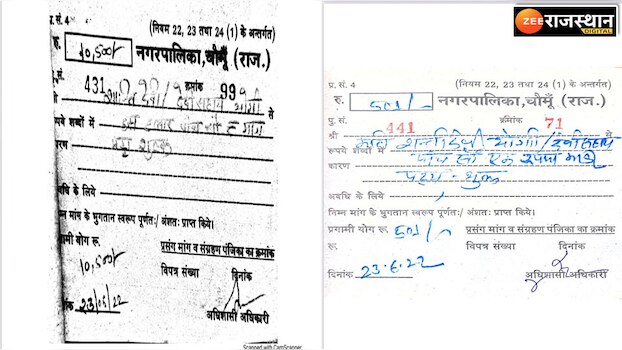 प्र. सं. 4 (नियम 22, 23 तथा 24 (1) के अन्तर्गत)
रु. 10,500/- नगरपालिका, चौमूँ (राज.)
पु. सं. 431 क्रमांक 99
श्री से
रुपये शब्दों में दस हजार पांच सौ रु मात्र
कारण शुल्क
अवधि के लिये
निम्न मांग के भुगतान स्वरूप पूर्णतः/ अंशतः प्राप्त किये।
प्रगामी योग रु. प्रसंग मांग व संग्रहण पंजिका का क्रमांक
10,500/- विपत्र संख्या दिनांक
दिनांक 23/06/22
अधिशासी अधिकारी
Scanned with CamScanner
ZEE राजस्थान
DIGITAL
प्र. सं. 4 (नियम 22, 23 तथा 24 (1) के अन्तर्गत)
रु. 501/- नगरपालिका, चौमूँ (राज.)
पु. सं. 441 क्रमांक 71
श्री से
रुपये शब्दों में पांच सौ एक रुपया मात्र
कारण पट्टा शुल्क
अवधि के लिये
निम्न मांग के भुगतान स्वरूप पूर्णतः/ अंशतः प्राप्त किये।
प्रगामी योग रु. 501/- प्रसंग मांग व संग्रहण पंजिका का क्रमांक
रु. विपत्र संख्या दिनांक
दिनांक 23.6.22
अधिशासी अधिकारी